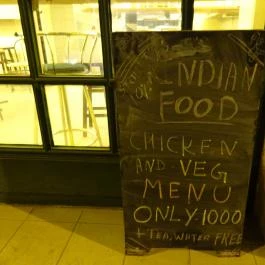 INDIAN
FOOD
CHICKEN
AND VEG
MENU
ONLY 1000
+ TEA, WATER FREE